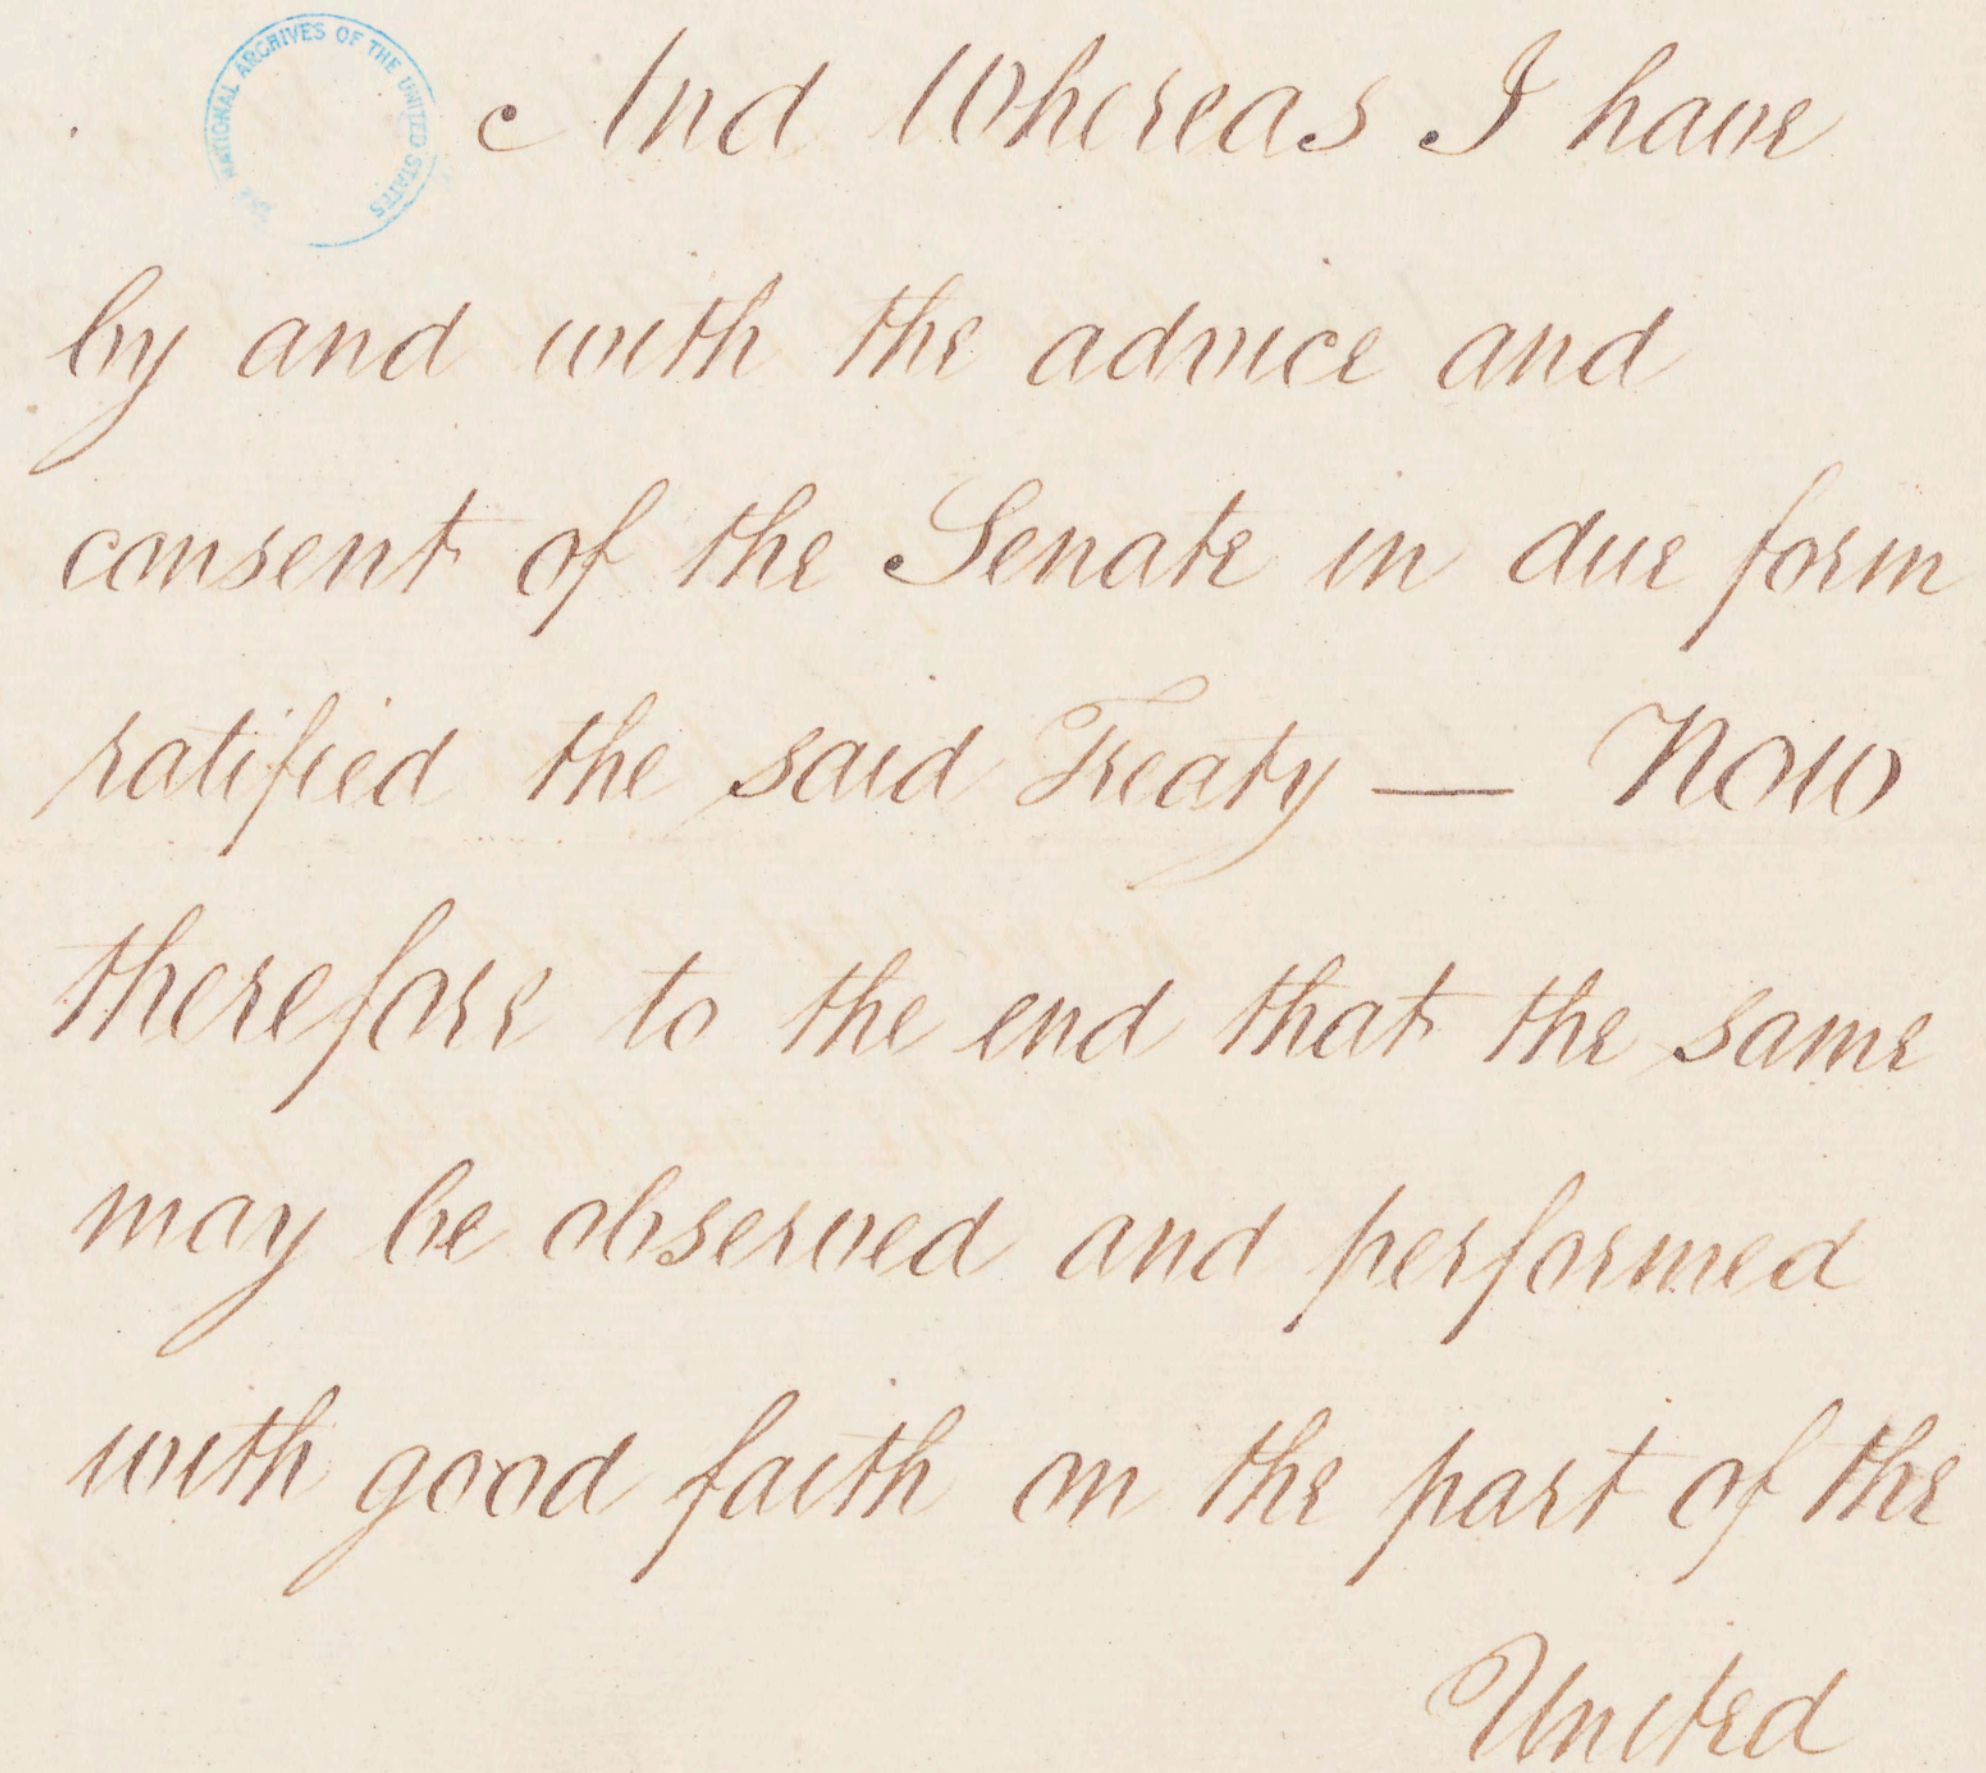 THE NATIONAL ARCHIVES OF THE UNITED STATES
And Whereas I have
by and with the advice and
consent of the Senate in due form
ratified the said Treaty — Now
therefore to the end that the same
may be observed and performed
with good faith on the part of the
United